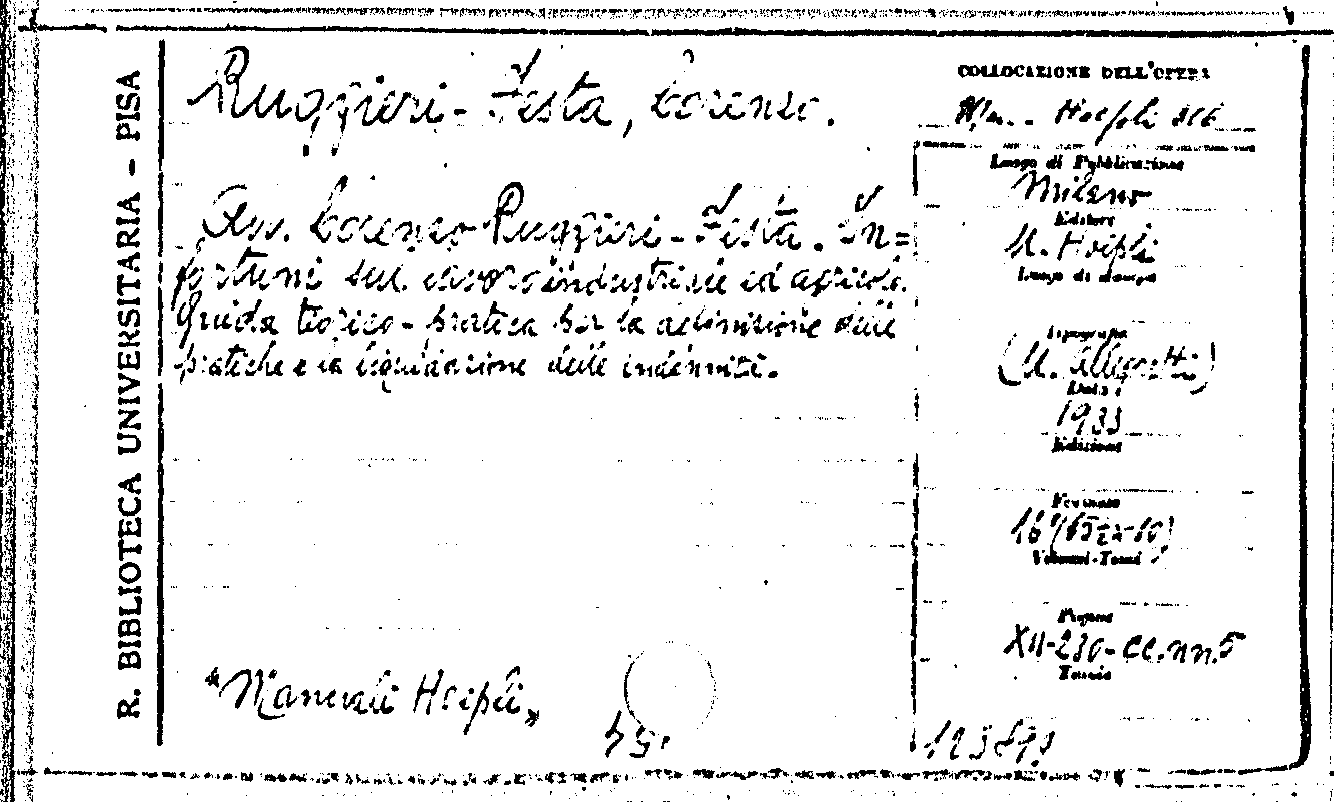 R. BIBLIOTECA UNIVERSITARIA - PISA
Ruggieri-Festa, Lorenzo.
Avv. Lorenzo Ruggieri-Festa. In=
fortuni sul lavoro industriale ed agricolo.
Guida teorico-pratica per la definizione delle
pratiche e la liquidazione delle indennità.
"Manuali Hoepli„
COLLOCAZIONE DELL'OPERA
Man. - Hoepli
Luogo di Pubblicazione
Milano
Editore
U. Hoepli
Luogo di stampa
Tipografia
(U. Allegretti)
Data
1933
Edizione
Formato
16º (15x10)
Volumi-Tomi
Pagine
XII-230-cc.nn.5
Tavole